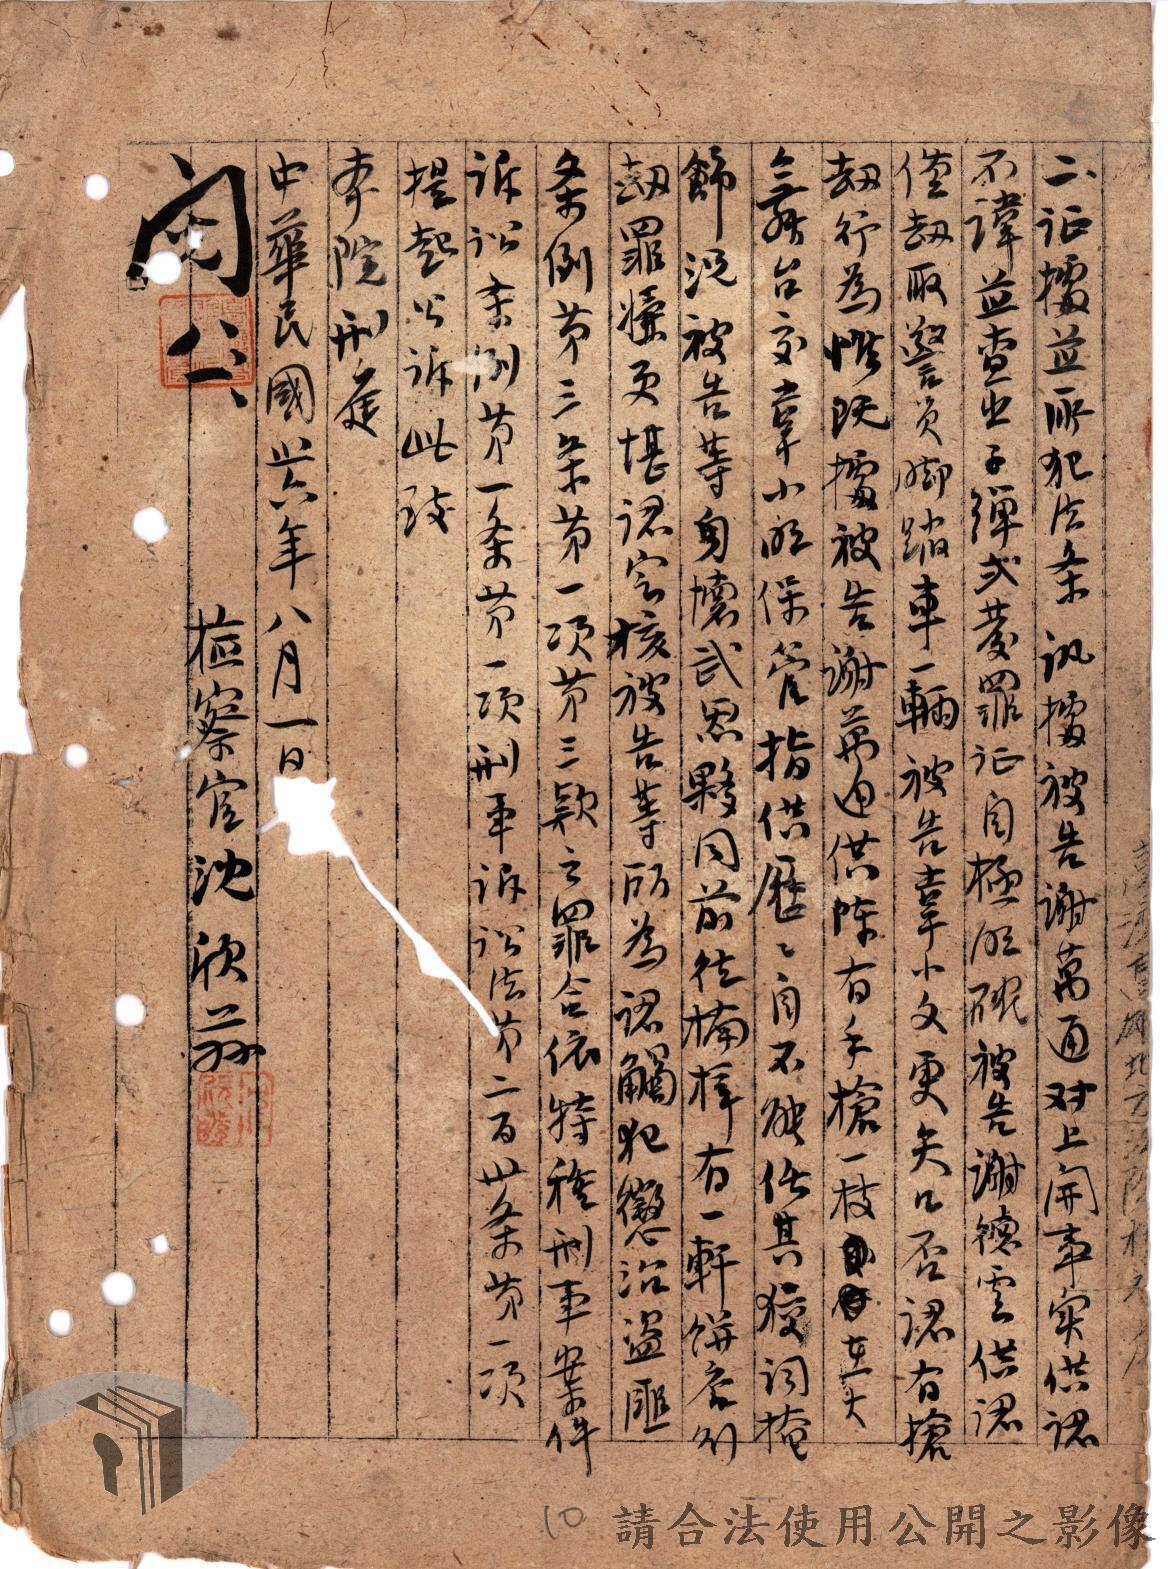 二、证據並所犯法条 訊據被告謝萬通对上開事实供認
不諱並查出子彈弍發罪证自極明確被告謝德雲供認
僅劫取警員脚踏車一輛被告韋小文更矢口否認有搶
劫行為惟既據被告謝萬通供陳有手槍一枝在大
舞台交韋小旺保管指供歷ミ自不能任其狡詞掩
飾況被告等身懷武器夥同前往楠梓有一軒餅店行
劫罪嫌更堪認定核被告等所為認觸犯懲治盜匪
条例第三条第一項第三款之罪合依特種刑事案件
訴訟条例第一条第一項刑事訴訟法第二百卅条第一項
提起公訴此致
本院刑庭
中華民國卅六年八月一日
檢察官沈欣蓀
閱 八、一、
10
請合法使用公開之影像